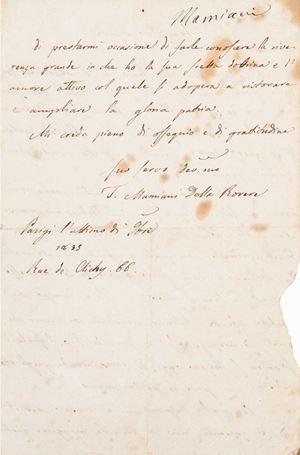 Mamiani
di prestarmi occasione di farle conoscere la rive-
renza grande in che ho la sua scelta dottrina e l'
amore attivo col quale s'adopera a ristorare
e ampliare la gloria patria.
Mi creda pieno di ossequio e di gratitudine
suo servo dev.mo
T. Mamiani Della Rovere
Parigi l'ultimo di
1835
Rue de Clichy. 66.